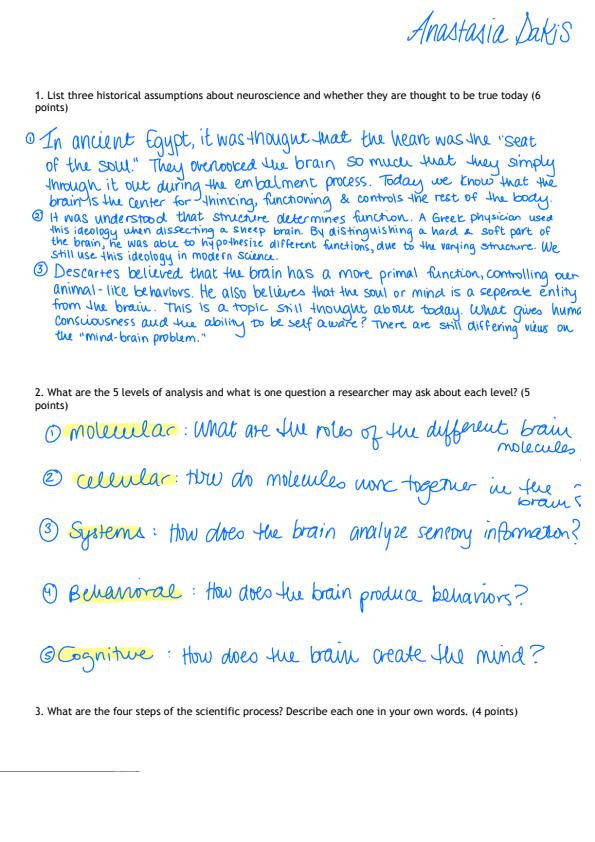 Anastasia Sakis
1. List three historical assumptions about neuroscience and whether they are thought to be true today (6
points)
① In ancient Egypt, it was thought that the heart was the "seat
of the soul." They overlooked the brain so much that they simply
through it out during the embalment process. Today we know that the
brain is the center for thinking, functioning & controls the rest of the body.
② It was understood that structure determines function. A Greek physician used
this ideology when dissecting a sheep brain. By distinguishing a hard & soft part of
the brain, he was able to hypothesize different functions, due to the varying structure. We
still use this ideology in modern science.
③ Descartes believed that the brain has a more primal function, controlling our
animal-like behaviors. He also believes that the soul or mind is a seperate entity
from the brain. This is a topic still thought about today. What gives huma
consciousness and the ability to be self aware? There are still differing views on
the "mind-brain problem."
2. What are the 5 levels of analysis and what is one question a researcher may ask about each level? (5
points)
① molecular : What are the roles of the different brain
molecules
② cellular : How do molecules work together in the
brain?
③ Systems : How does the brain analyze sensory information?
④ Behavioral : How does the brain produce behaviors?
⑤ Cognitive : How does the brain create the mind?
3. What are the four steps of the scientific process? Describe each one in your own words. (4 points)